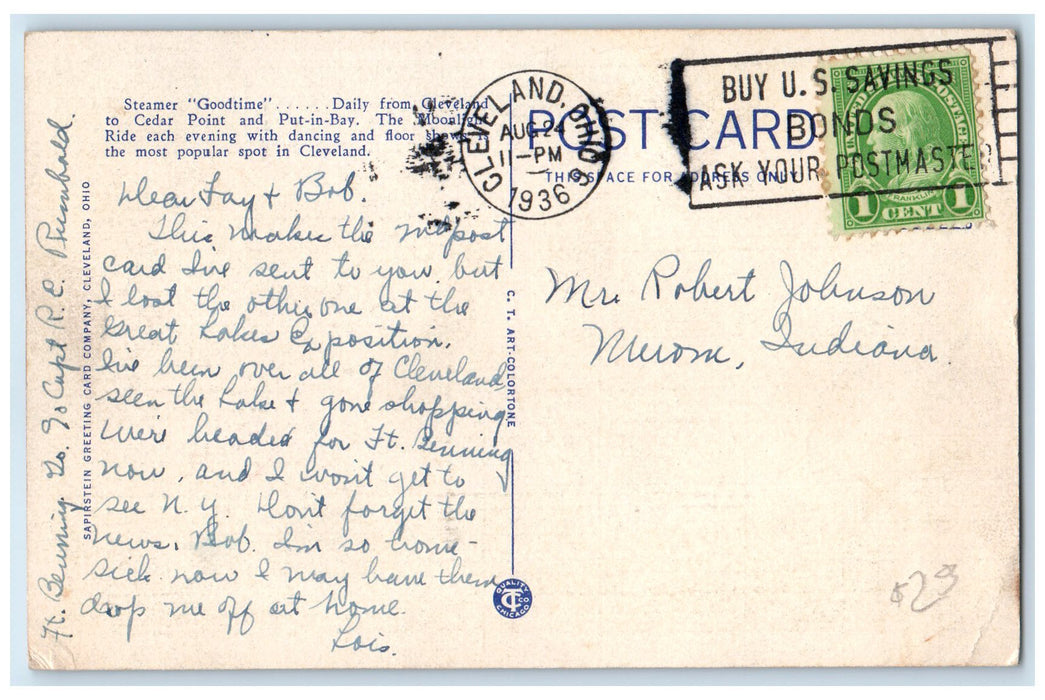 Steamer "Goodtime" ...... Daily from Cleveland
to Cedar Point and Put-in-Bay. The Moonlight
Ride each evening with dancing and floor shows is
the most popular spot in Cleveland.
CLEVELAND, OHIO
AUG 24
11-PM
1936
BUY U. S. SAVINGS
BONDS
ASK YOUR POSTMASTER
POST CARD
THIS SPACE FOR ADDRESS ONLY
UNITED STATES POSTAGE
FRANKLIN
1 CENT 1
Dear Fay + Bob.
This makes the post
card I've sent to you but
I lost the other one at the
Great Lakes Exposition.
I've been over all of Cleveland,
seen the Lake + gone shopping.
We're headed for Ft. Benning
now, and I won't get to
see N.Y. Don't forget the
news, Bob. I'm so home-
sick now I may have them
drop me off at home.
Lois.
Ft. Benning Ga. % Capt R. C.
SAPIRSTEIN GREETING CARD COMPANY, CLEVELAND, OHIO
C. T. ART-COLORTONE
QUALITY
CT CO
CHICAGO
Mr. Robert Johnson
Merom, Indiana.